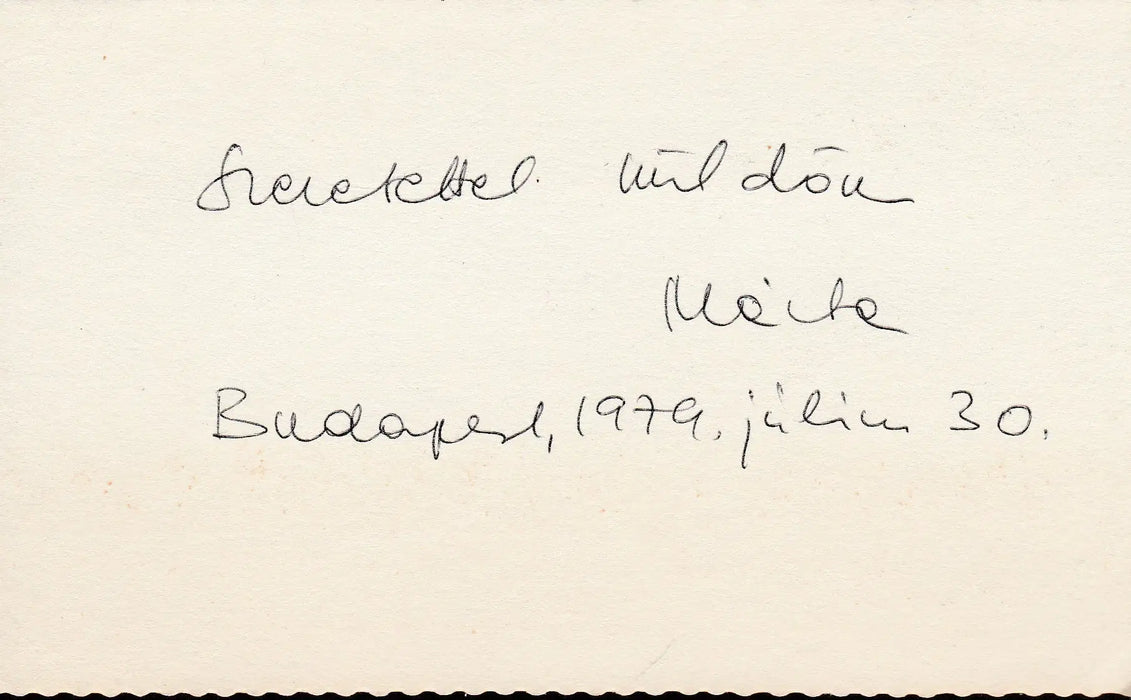 Szeretettel küldöm
Márta
Budapest, 1979. július 30.